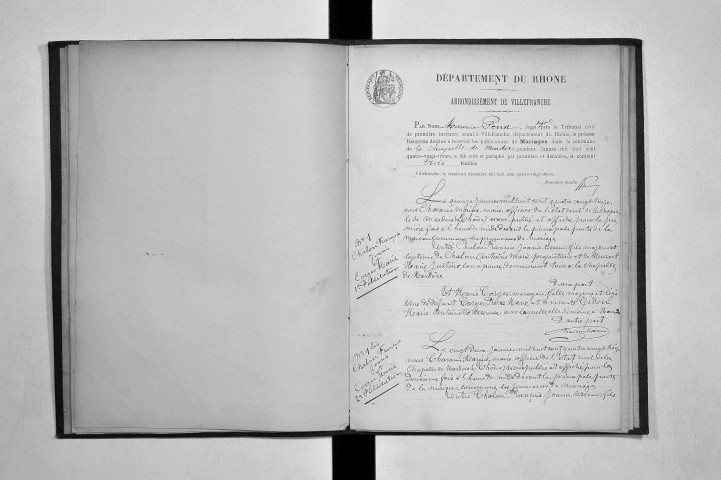 DÉPARTEMENT DU RHONE
ARRONDISSEMENT DE VILLEFRANCHE
PAR NOUS, Maurice Pond, Juge suppl près le Tribunal civil
de première instance, séant à Villefranche, département du Rhône, le présent
Registre destiné à recevoir les publications de Mariages dans la commune
de la Chapelle de Mardore pendant l'année mil huit cent
quatre-vingt-treize, a été coté et paraphé par première et dernière, et contient
trois feuillets.
Villefranche, le trente décembre mil huit cent quatre-vingt-douze.
Premier feuillet.
Le quinze janvier mil huit cent quatre vingt treize
nous Chavanis Marius, maire, officier de l'état civil de la Chapel
le de Mardore (Rhône) avons publié et affiché pour la pre
mière fois à l'heure de midi devant la principale porte de la
maison commune les promesses de mariage
Entre Chalon François Joanis, fils majeur et
légitime de Chalon Antoine Marie propriétaire et de
Marie Justine, demeurant tous à la Chapelle
de Mardore
D'une part
Et Marie Corger ménagère, fille majeure et légi
time de défunt Corger Marie et de
Marie avec laquelle elle demeure à
D'autre part.
N° 1
Chalon François
Joanis
et
Corger Marie
1re Publication
Le vingt deux janvier mil huit cent quatre vingt treize
nous Chavanis Marius, maire, officier de l'état civil de la
Chapelle de Mardore (Rhône) avons publié et affiché pour la
deuxième fois à l'heure de midi devant la principale porte
de la maison commune les promesses de mariage
Entre Chalon François Joanis, fils
N° 1 bis
Chalon François
Joanis
et
Corger Marie
2e Publication